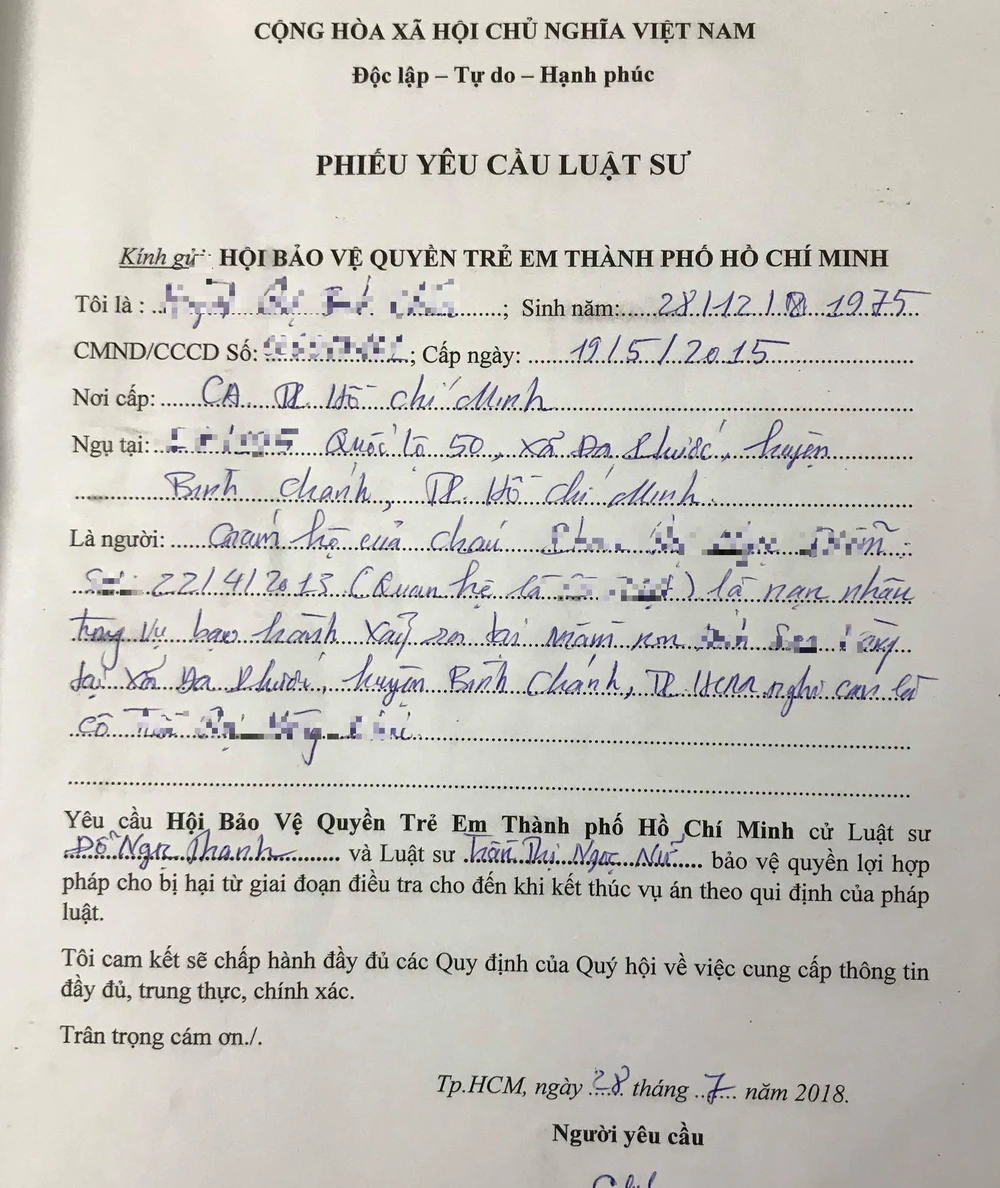 CỘNG HÒA XÃ HỘI CHỦ NGHĨA VIỆT NAM
Độc lập – Tự do – Hạnh phúc
PHIẾU YÊU CẦU LUẬT SƯ
Kính gửi: HỘI BẢO VỆ QUYỀN TRẺ EM THÀNH PHỐ HỒ CHÍ MINH
Tôi là : ...; Sinh năm: 28/12/ 1975
CMND/CCCD Số: ; Cấp ngày: 19/5/2015
Nơi cấp: CA. TP. Hồ Chí Minh
Ngụ tại: Quốc lộ 50, xã Đa Phước, huyện
Bình Chánh, TP. Hồ Chí Minh.
Là người: Giám hộ của cháu
22/4/2013 (Quan hệ là ) là nạn nhân
trong vụ bạo hành xảy ra tại mầm non
tại xã Đa Phước, huyện Bình Chánh, TP. HCM nghi can là
cô
Yêu cầu Hội Bảo Vệ Quyền Trẻ Em Thành phố Hồ Chí Minh cử Luật sư
Đỗ Ngọc Thanh và Luật sư Trần Thị Ngọc Nữ bảo vệ quyền lợi hợp
pháp cho bị hại từ giai đoạn điều tra cho đến khi kết thúc vụ án theo qui định của pháp
luật.
Tôi cam kết sẽ chấp hành đầy đủ các Quy định của Quý hội về việc cung cấp thông tin
đầy đủ, trung thực, chính xác.
Trân trọng cám ơn./.
Tp.HCM, ngày 28 tháng 7 năm 2018.
Người yêu cầu